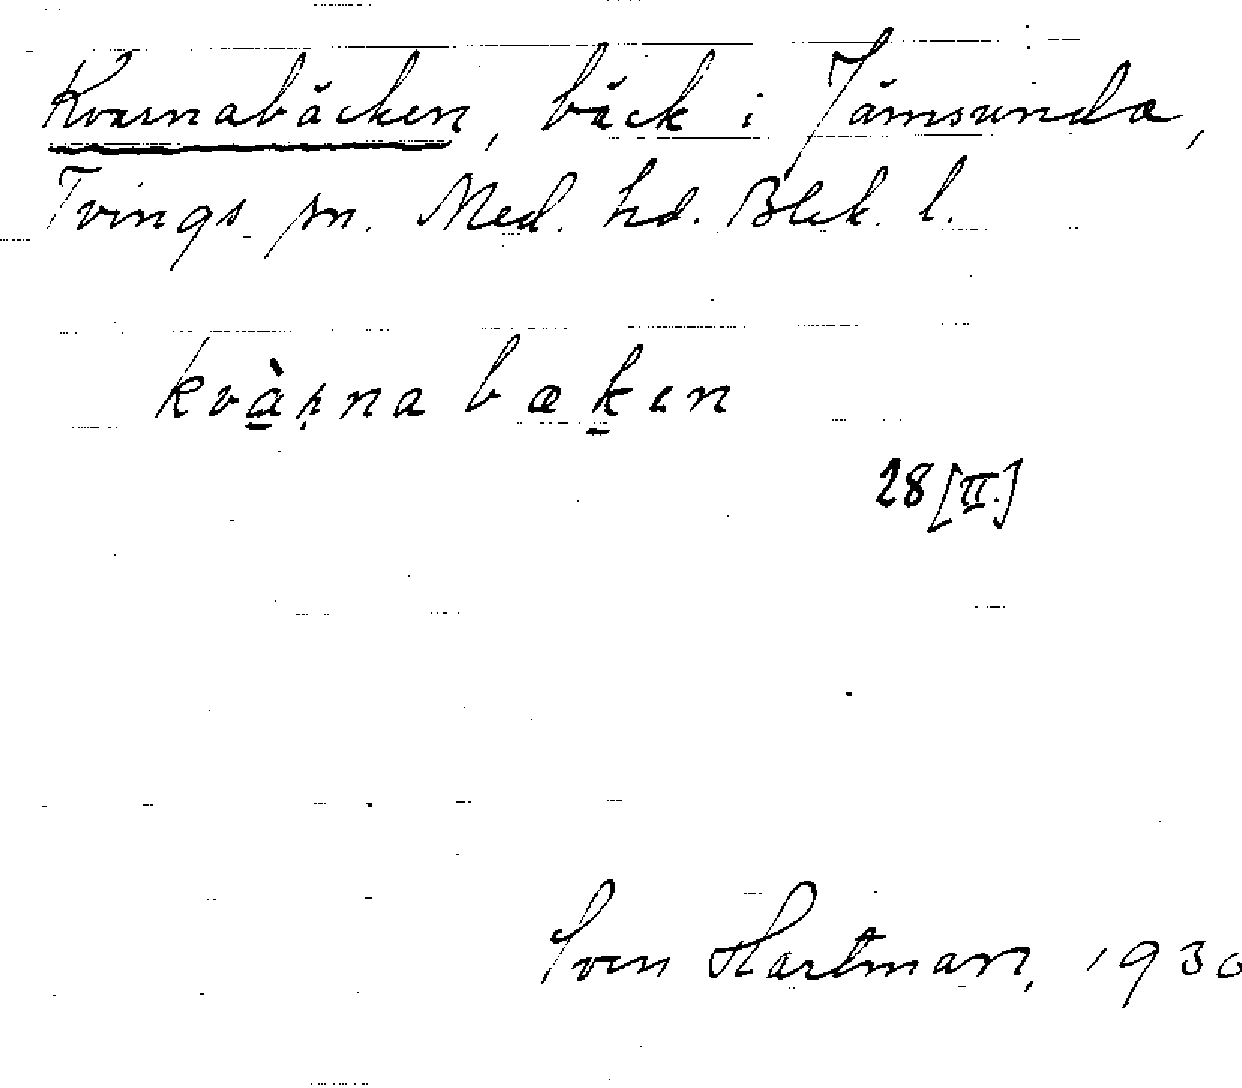 Kvarnabäcken, bäck i Jämsunda,
Tvings sn. Med. hd. Blek. l.
kvàṛna bækɛn
28 [II.]
Sven Hartman, 1930